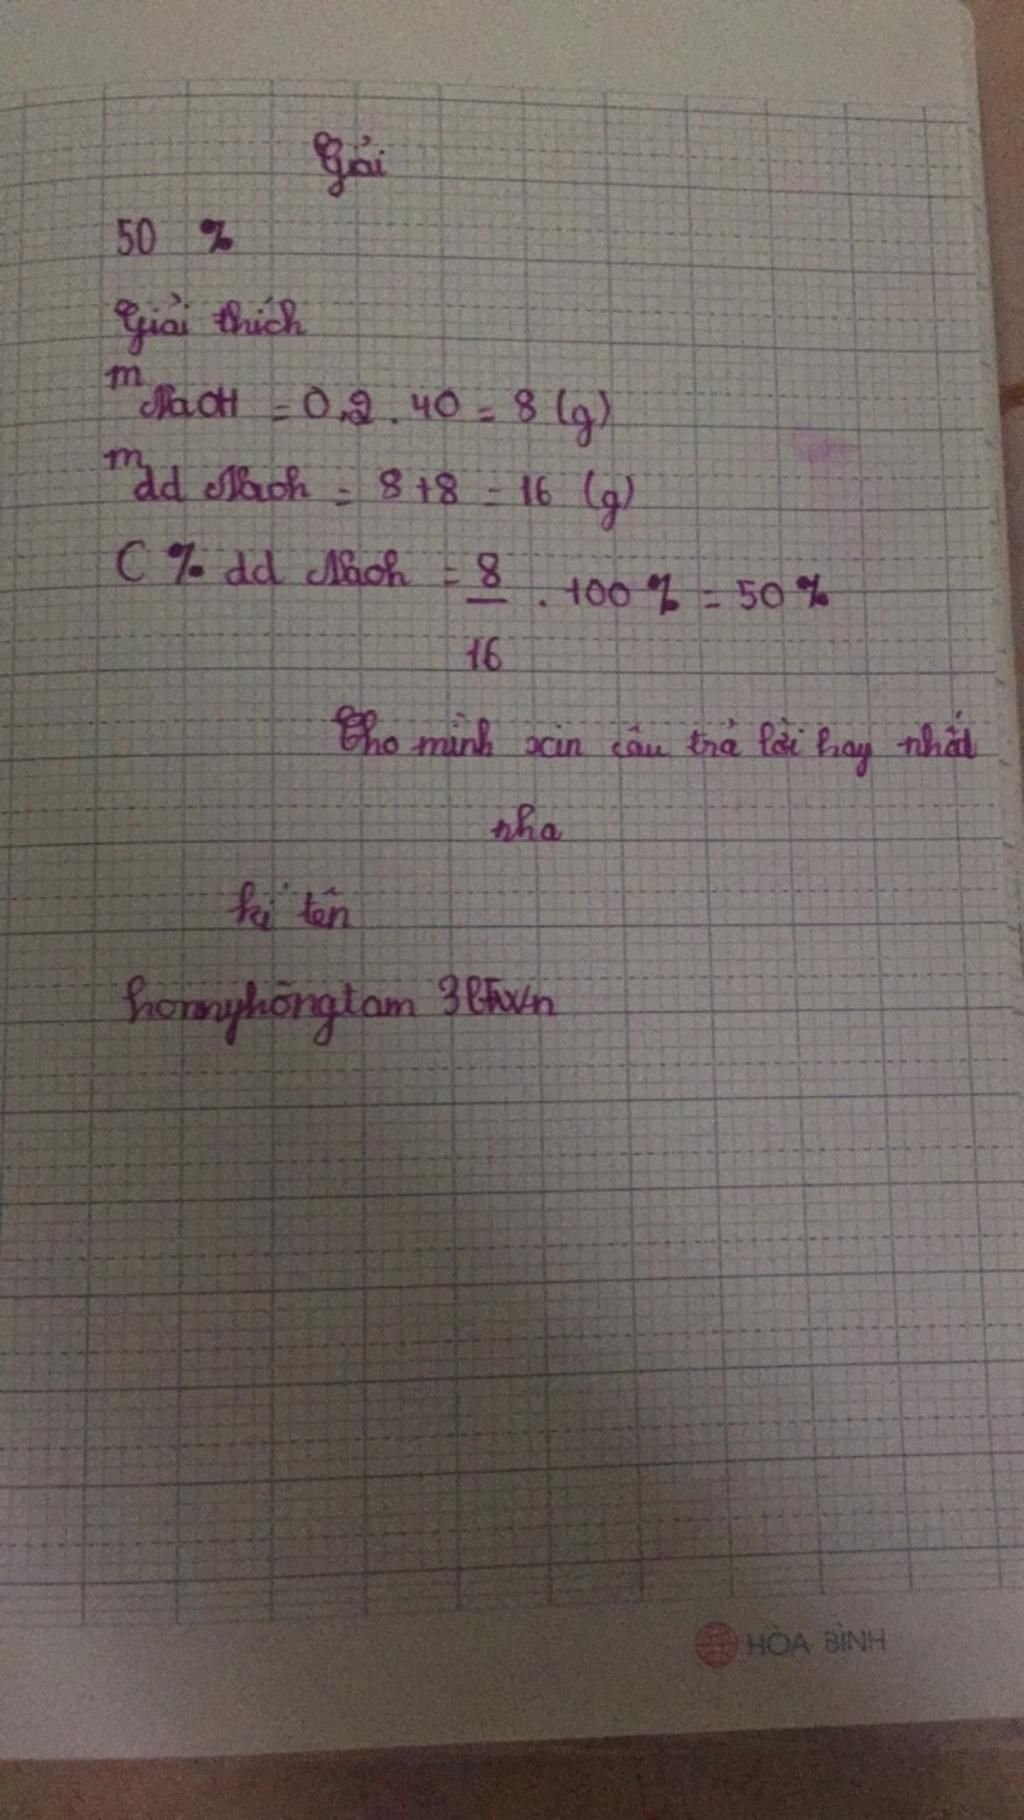 Giải
50 %
Giải thích
mNaOH = 0,2 . 40 = 8 (g)
mdd NaOh = 8+8 = 16 (g)
C % dd NaOh = 8/16 . 100 % = 50 %
Cho mình xin câu trả lời hay nhất
nha
kí tên
HÒA BÌNH